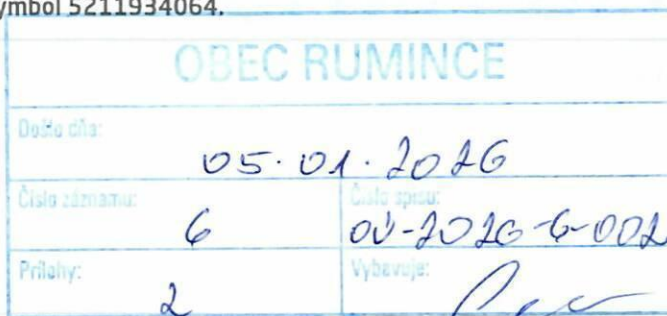 ymbol 5211934064.
OBEC RUMINCE
Došlo dňa:
05.01.2026
Číslo záznamu:
6
Číslo spisu:
OÚ-2026-6-002
Prílohy:
2
Vybavuje: